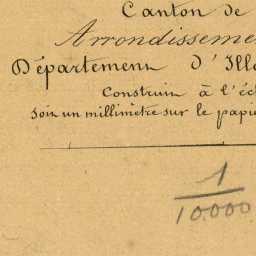 Canton de
Arrondisseme
Département d'Ille
Construit à l'éc
soit un millimètre sur le papie
1
10.000